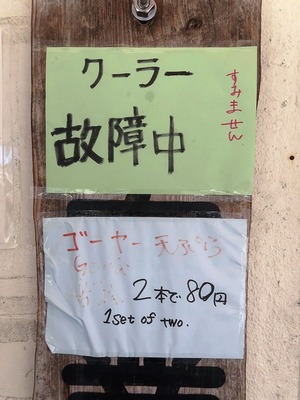 クーラー
故障中
すみません
ゴーヤー天ぷら
2本で80円
1set of two.